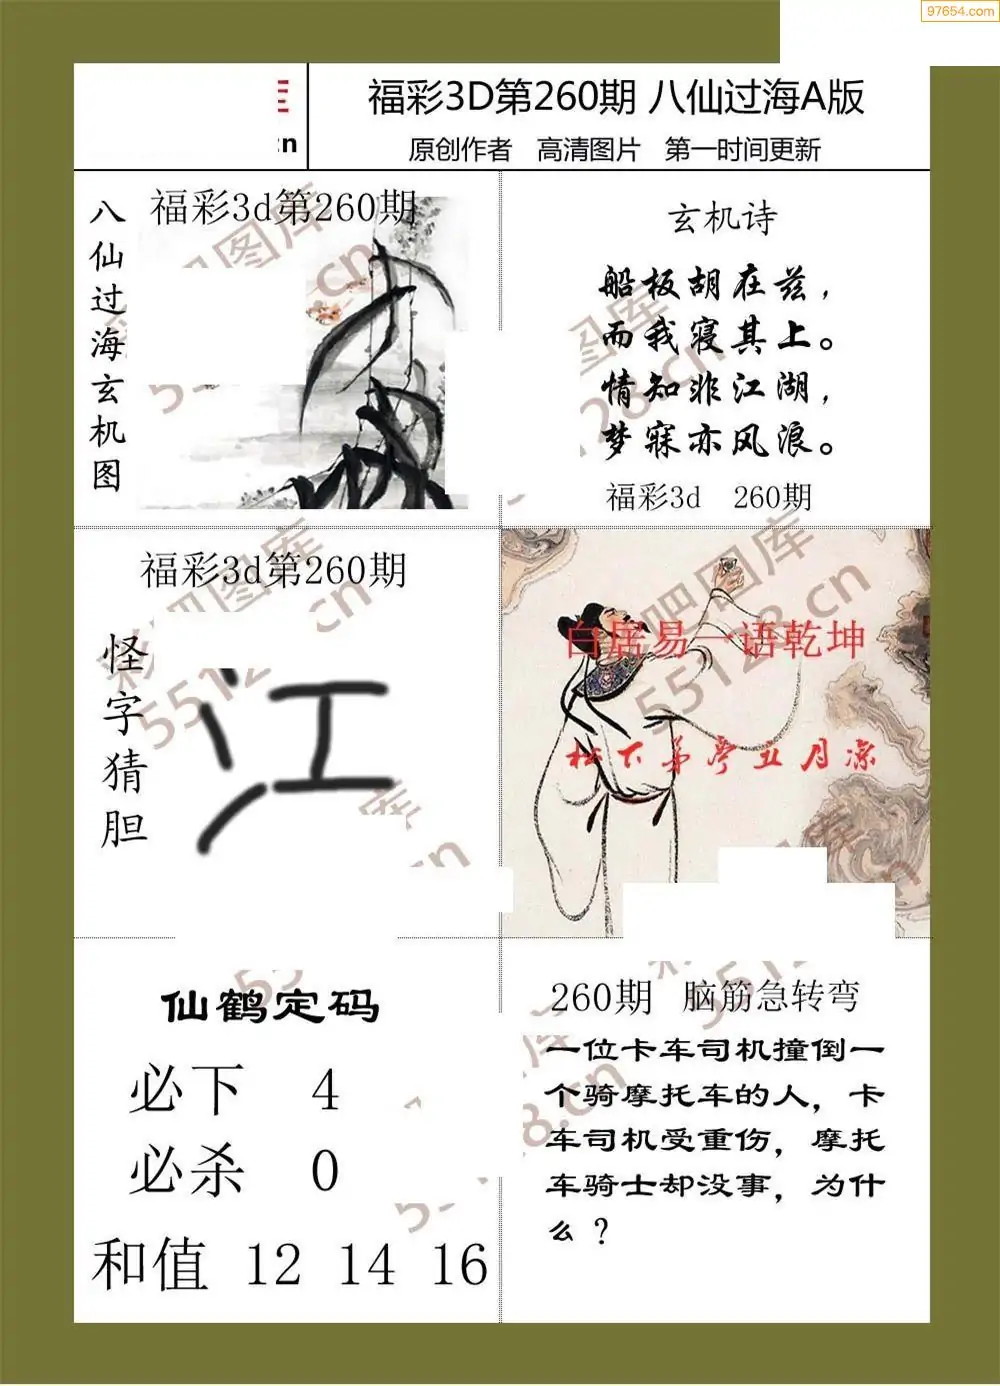 97654.com
:n
福彩3D第260期 八仙过海A版
原创作者 高清图片 第一时间更新
八仙过海玄机图
福彩3d第260期
玄机诗
船板胡在兹，
而我寝其上。
情知非江湖，
梦寐亦风浪。
福彩3d 260期
福彩3d第260期
怪字猜胆
江
白居易一语乾坤
松下茅亭五月凉
仙鹤定码
必下 4
必杀 0
和值 12 14 16
260期 脑筋急转弯
一位卡车司机撞倒一
个骑摩托车的人，卡
车司机受重伤，摩托
车骑士却没事，为什
么？